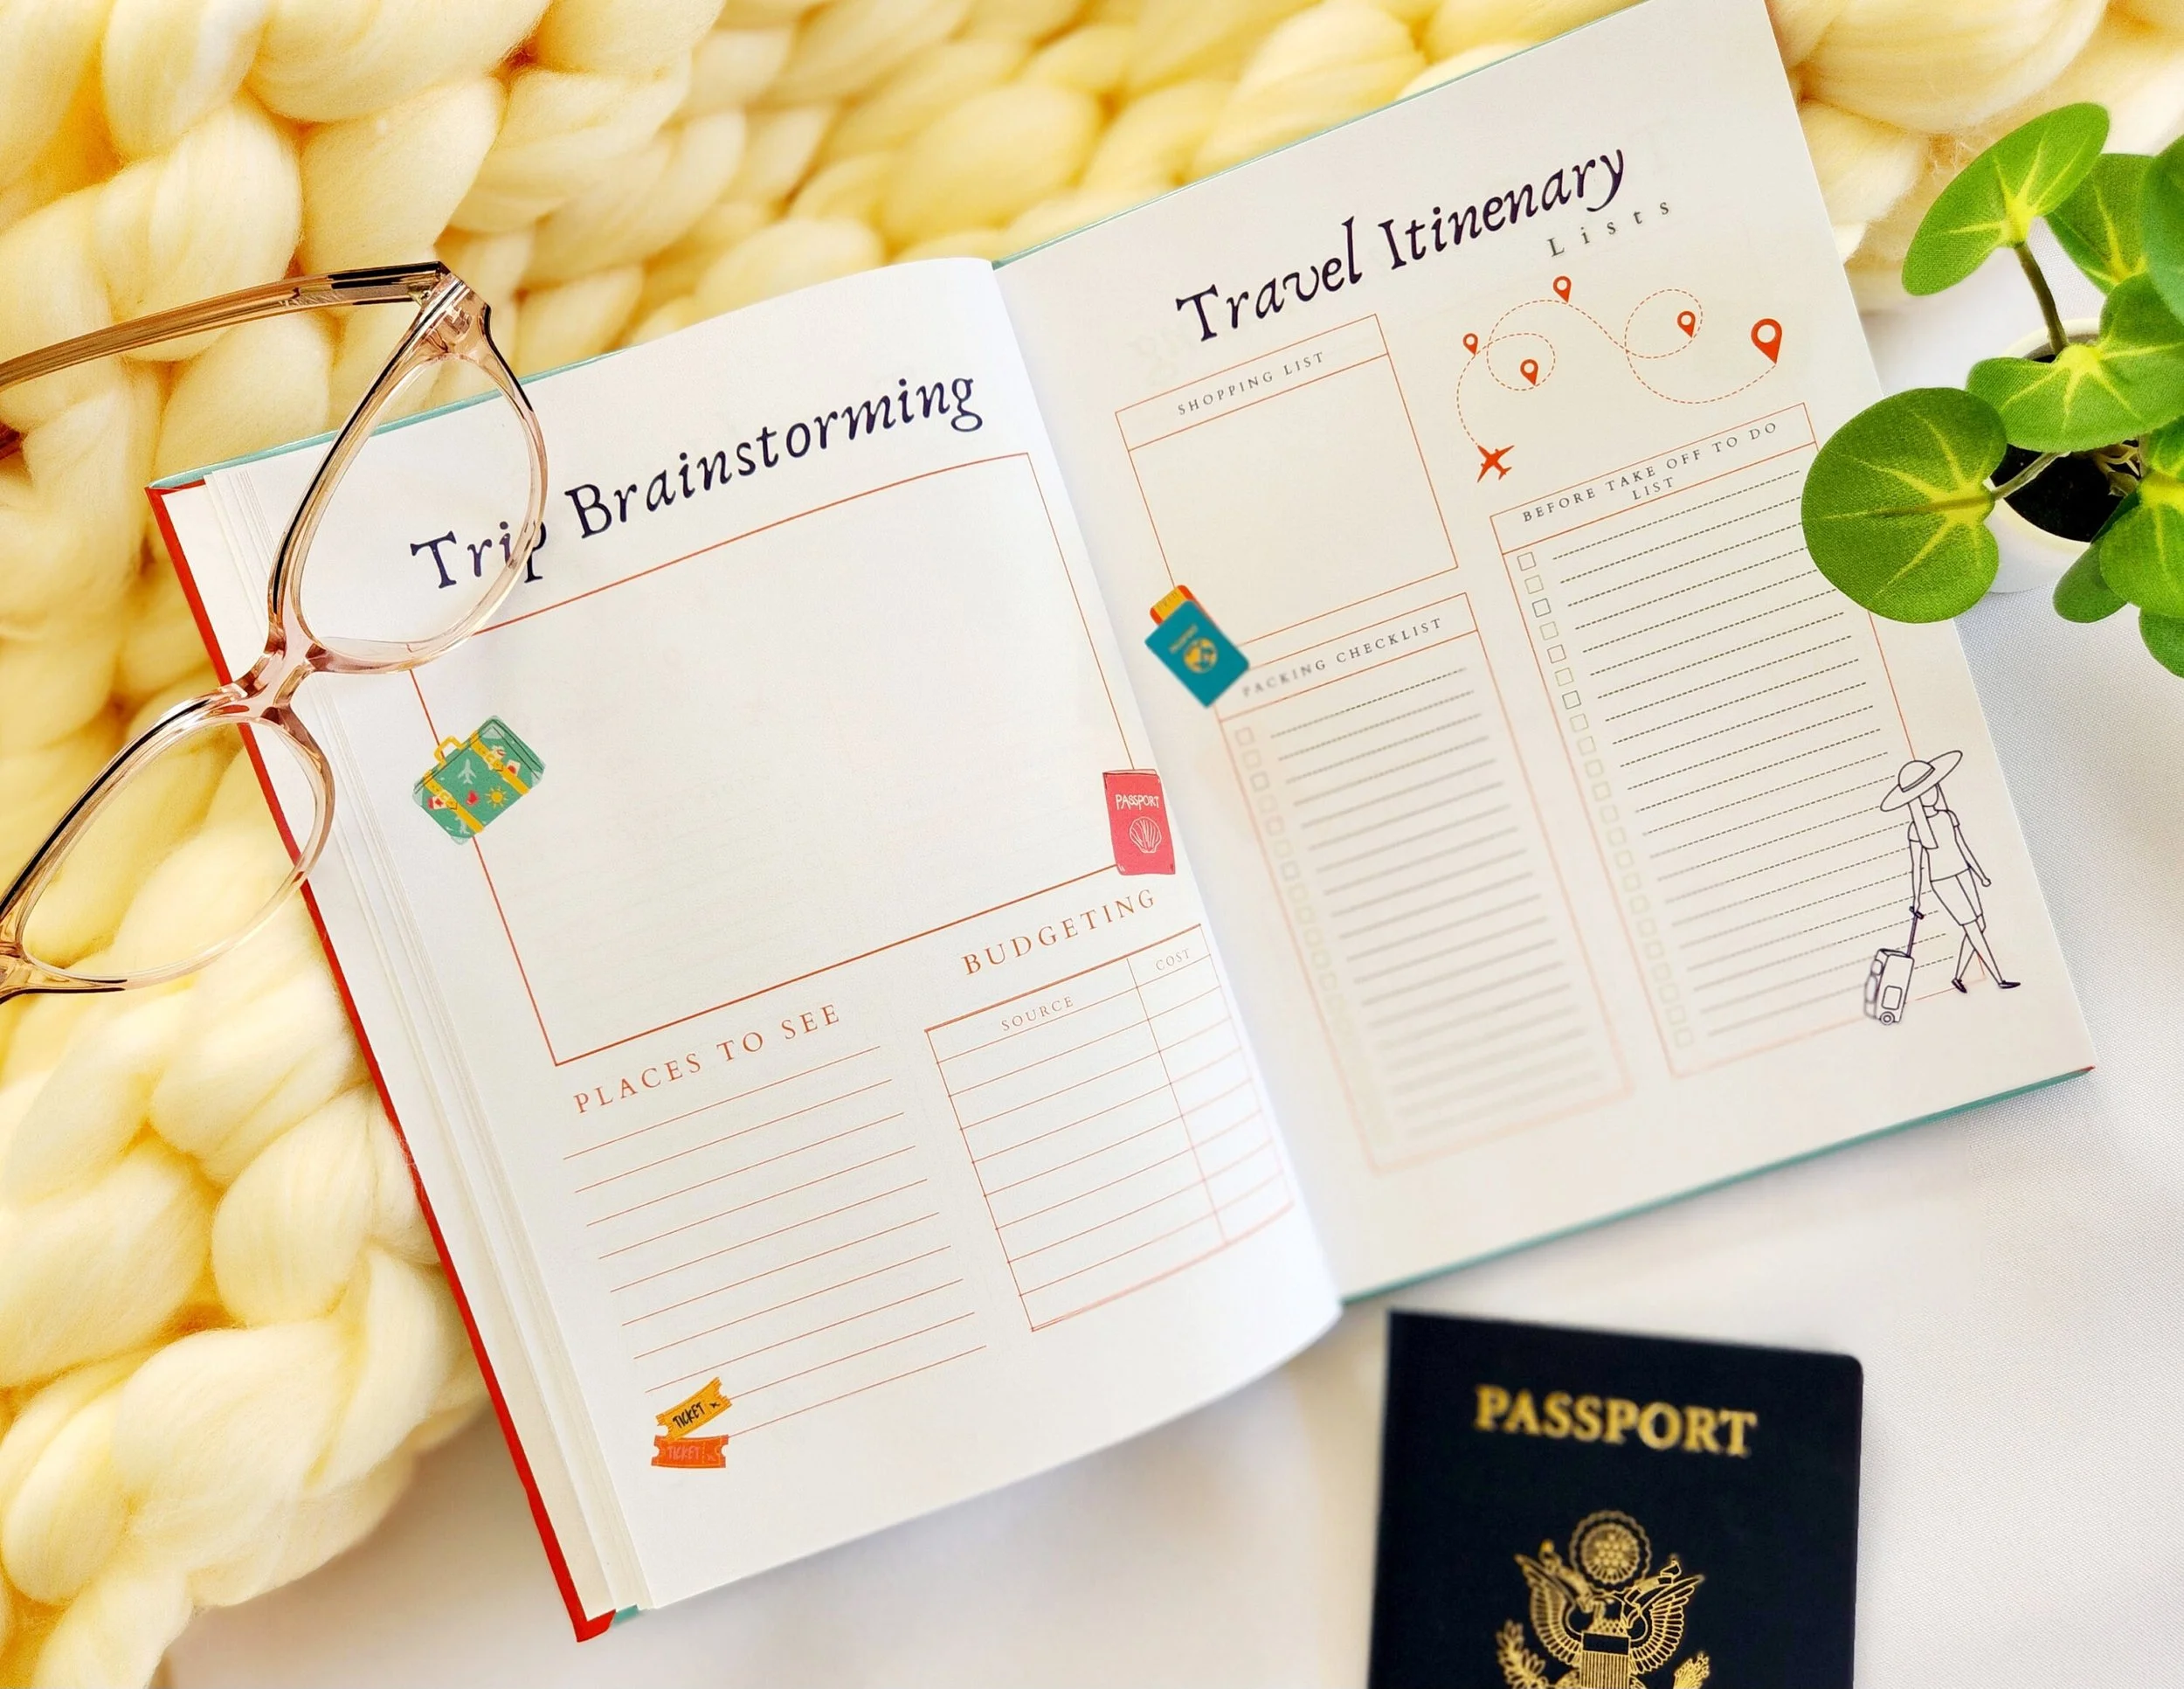 Trip Brainstorming
PASSPORT
PLACES TO SEE
BUDGETING
SOURCE
COST
TICKET
TICKET
Travel Itinenary
Lists
SHOPPING LIST
BEFORE TAKE OFF TO DO
LIST
PACKING CHECKLIST
PASSPORT